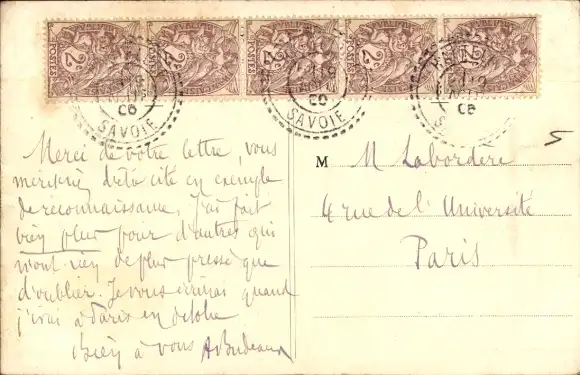 SAVOIE
06
SAVOIE
06
06
Merci de votre lettre, vous
méritez d'être cité en exemple
de reconnaissance, j'ai fait
bien plus pour d'autres qui
n'ont rien de plus pressé que
d'oublier. Je vous écrirai quand
j'irai à Paris en octobre
Bien à vous ABordeaux
M M Labordère
4 rue de l'Université
Paris
5